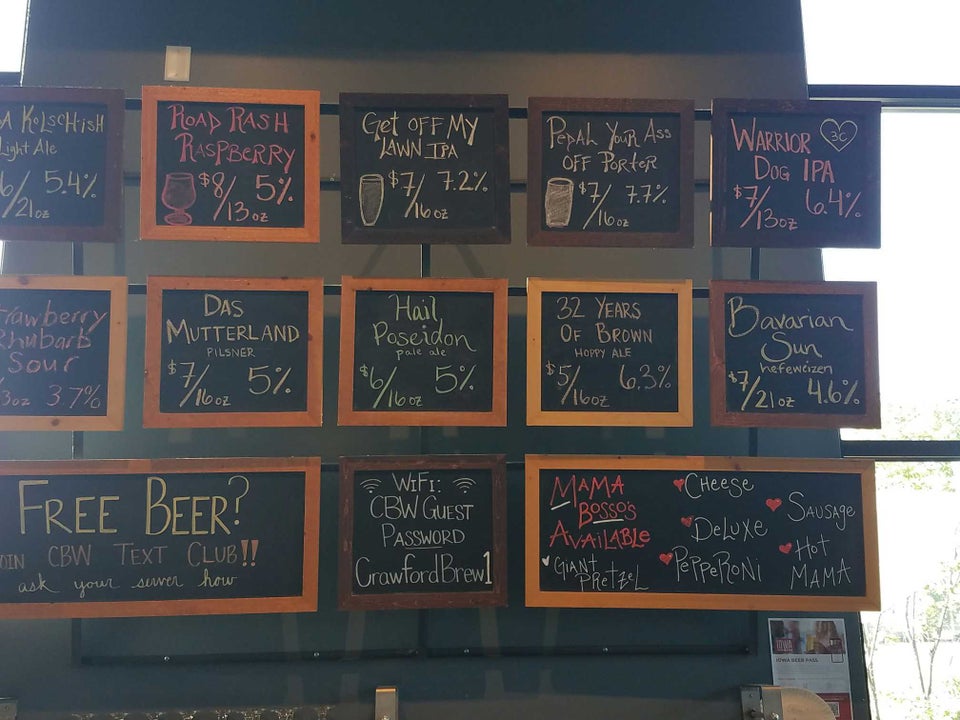 A KOLSCH-ISH
Light Ale
6/21oz 5.4%
ROAD RASH
RASPBERRY
$8/13oz 5%
Get OFF MY
LAWN IPA
$7/16oz 7.2%
PEDAL YOUR ASS
OFF PORTER
$7/16oz 7.7%
WARRIOR 3C
DOG IPA
$7/13oz 6.4%
trawberry
Rhubarb
Sour
3oz 3.7%
DAS
MUTTERLAND
PILSNER
$7/16oz 5%
Hail
Poseidon
pale ale
$6/16oz 5%
32 YEARS
OF BROWN
HOPPY ALE
$5/16oz 6.3%
Bavarian
Sun
hefeweizen
$7/21oz 4.6%
FREE BEER?
OIN CBW TEXT CLUB!!
ask your server how
WIFI:
CBW GUEST
PASSWORD
CrawfordBrew1
MAMA
BOSSO'S
AVAILABLE
GIANT
PRETZEL
CHEESE
DELUXE
PEPPERONI
SAUSAGE
HOT
MAMA
IOWA
IOWA BEER PASS